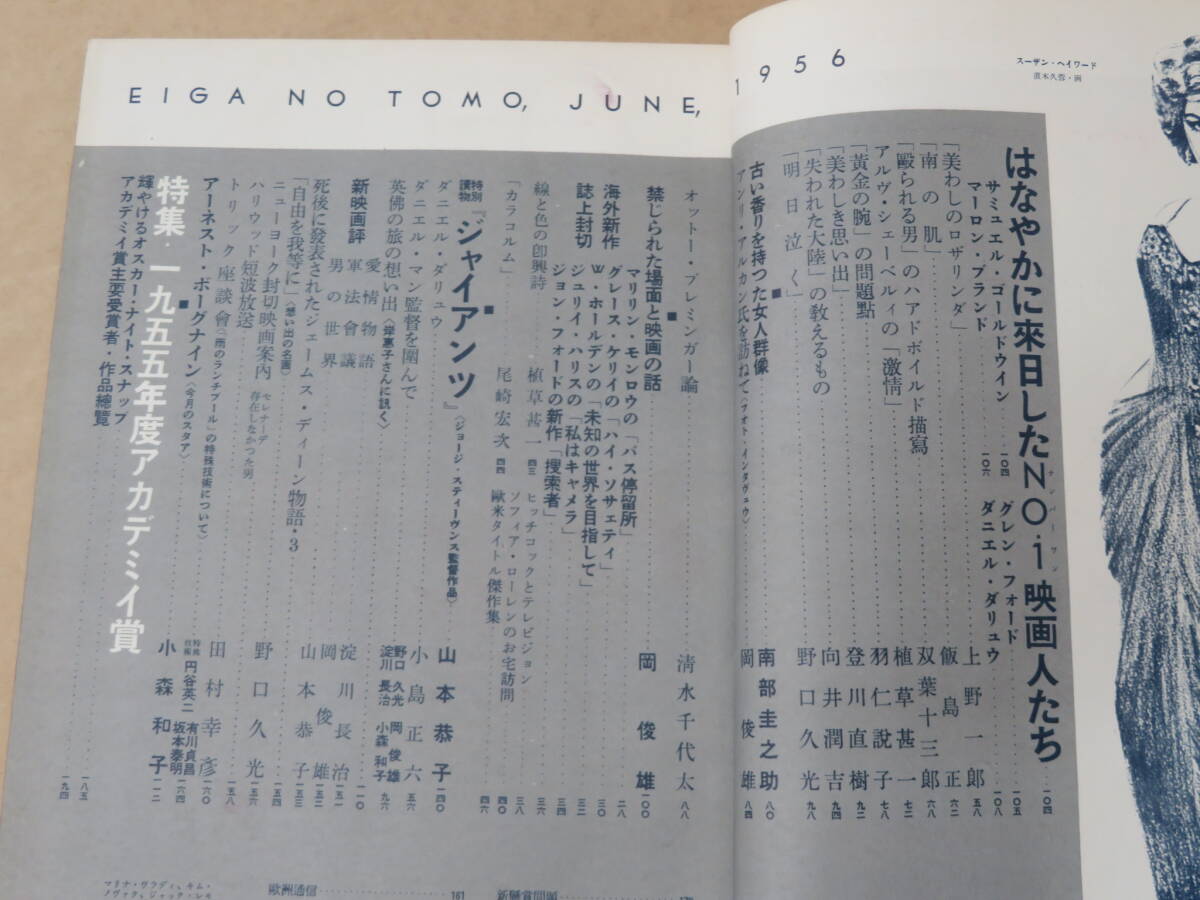 EIGA NO TOMO, JUNE, 1956
スーザン・ヘイワード
直木久蓉・画
はなやかに来日したNO・1映画人たち 一〇四
ナンバーワン
サミュエル・ゴールドウイン 一〇四
グレン・フォード 一〇五
マーロン・ブランド 一〇六
ダニエル・ダリュウ 一〇八
「美わしのロザリンダ」 上野一郎 六二
「南の肌」 飯島正 六八
「毆られる男」のハアドボイルド描寫 双葉十三郎 七二
アルヴ・シェーベルィの「激情」 植草甚一 七八
「黃金の腕」の問題點 羽仁說子 九二
「美わしき思い出」 登川直樹 九四
「失われた大陸」の敎えるもの 向井潤吉 九八
「明日泣く」 野口久光
古い香りを持つた女人群像 南部圭之助 八〇
アンリ・アルカン氏を訪ねて〈フオト・インタヴュウ〉 岡俊雄 八四
オットー・プレミンガー論 清水千代太 八八
禁じられた場面と映画の話 岡俊雄 一〇〇
海外新作
マリリン・モンロウの「バス停留所」 二八
グレース・ケリイの「ハイ・ソサェティ」 三〇
誌上封切
W・ホールデンの「未知の世界を目指して」 三二
ジュリイ・ハリスの「私はキャメラ」 三四
ジョン・フォードの新作「捜索者」 三六
線と色の卽興詩 植草甚一 四三
ヒッチコックとテレビジョン 三八
「カラコルム」 尾崎宏次 四四
ソフィア・ローレンのお宅訪問 四〇
歐米タイトル傑作集 四六
特別讀物 『ジャイアンツ』 〈ジョージ・スティーヴンス監督作品〉 山本恭子 一四〇
ダニエル・ダリュウ 小島正六 五六
ダニエル・マン監督を圍んで 野口久光 岡俊雄 淀川長治 小森和子 九六
英佛の旅の想い出〈岸惠子さんに訊く〉
新映画評
愛情物語 淀川長治 一五〇
軍法會議 岡俊雄 一五一
男の世界 山本恭子 一五二
死後に發表されたジェームス・ディーン物語・3 一五三
「自由を我等に」〈想い出の名画〉 野口久光 一五五
ニューヨーク封切映画案內 セレナーデ 存在しなかつた男
ハリウッド短波放送 田村幸彦 一五八
トリック座談會〈「雨のランチプール」の特殊技術について〉 特殊技術 円谷英二 有川貞昌 坂本泰明 一六〇
アーネスト・ボーグナイン〈今月のスタア〉 小森和子 一六四
特集・一九五五年度アカデミイ賞 一一二
輝やけるオスカー・ナイト・スナップ 一八五
アカデミイ賞主要受賞者・作品總覽 一九四
マリナ・ヴラディ、キム・
ノヴァク、ジャック・レモ
歐洲通信 161
新懸賞問題